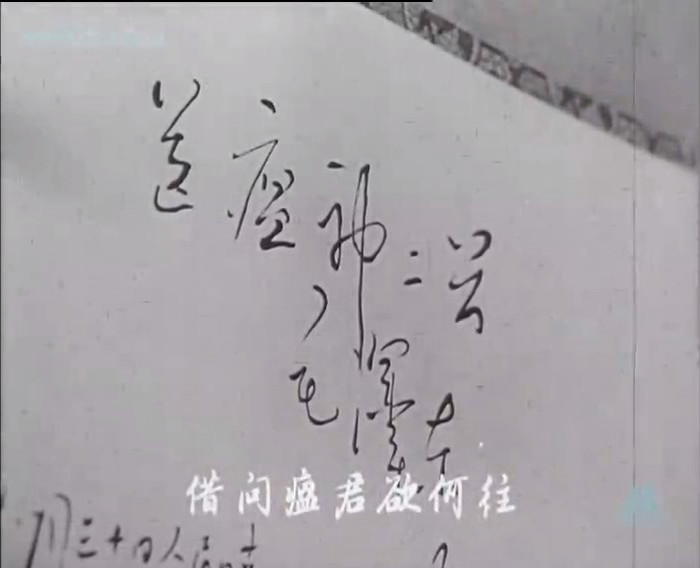 送瘟神二首
毛泽东
借问瘟君欲何往
月三十日人